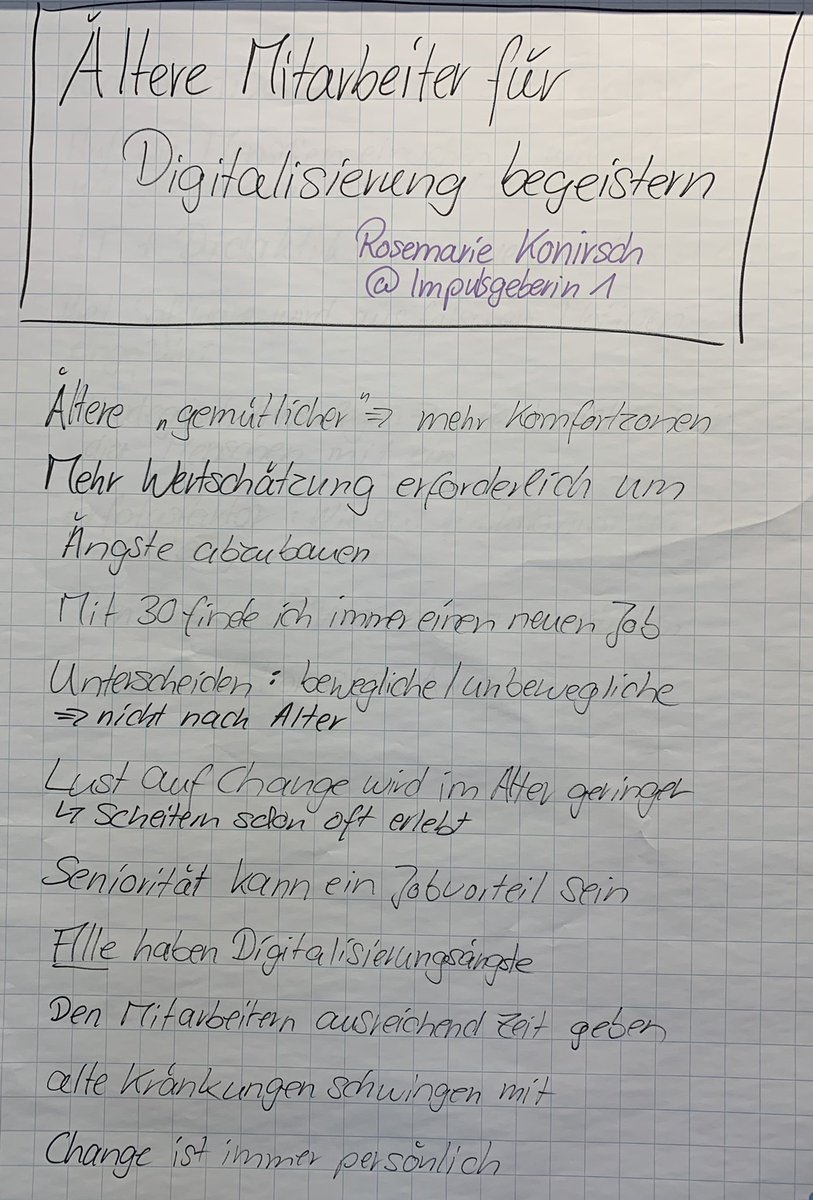 Ältere Mitarbeiter für
Digitalisierung begeistern
Rosemarie Konirsch
@Impulsgeberin1
Ältere „gemütlicher" ⇒ mehr Komfortzonen
Mehr Wertschätzung erforderlich um
Ängste abzubauen
Mit 30 finde ich immer einen neuen Job
Unterscheiden: bewegliche/unbewegliche
⇒ nicht nach Alter
Lust auf Change wird im Alter geringer
↳ Scheitern schon oft erlebt
Seniorität kann ein Jobvorteil sein
Alle haben Digitalisierungsängste
Den Mitarbeitern ausreichend Zeit geben
alte Kränkungen schwingen mit
Change ist immer persönlich